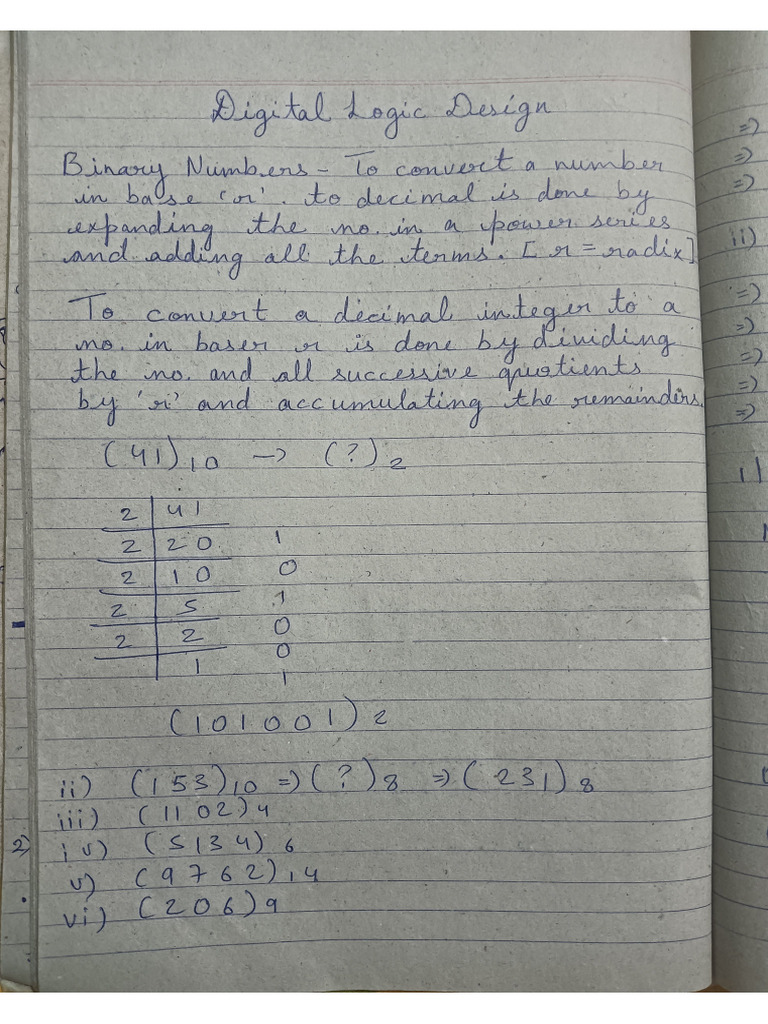 Digital Logic Design
Binary Numbers - To convert a number
in base 'r'. to decimal is done by
expanding the no. in a power series
and adding all the terms. [ r = radix]
To convert a decimal integer to a
no. in baser r is done by dividing
the no. and all successive quotients
by 'r' and accumulating the remainders.
(41)10 → (?)2
2 41
2 20 1
2 10 0
2 5 1
2 2 0
0
1 1
(101001)2
ii) (153)10 => (?)8 => (231)8
iii) (1102)4
2) iv) (5134)6
v) (9762)14
vi) (206)9
=>
=>
=>
ii)
=>
=>
=>
=>
=>